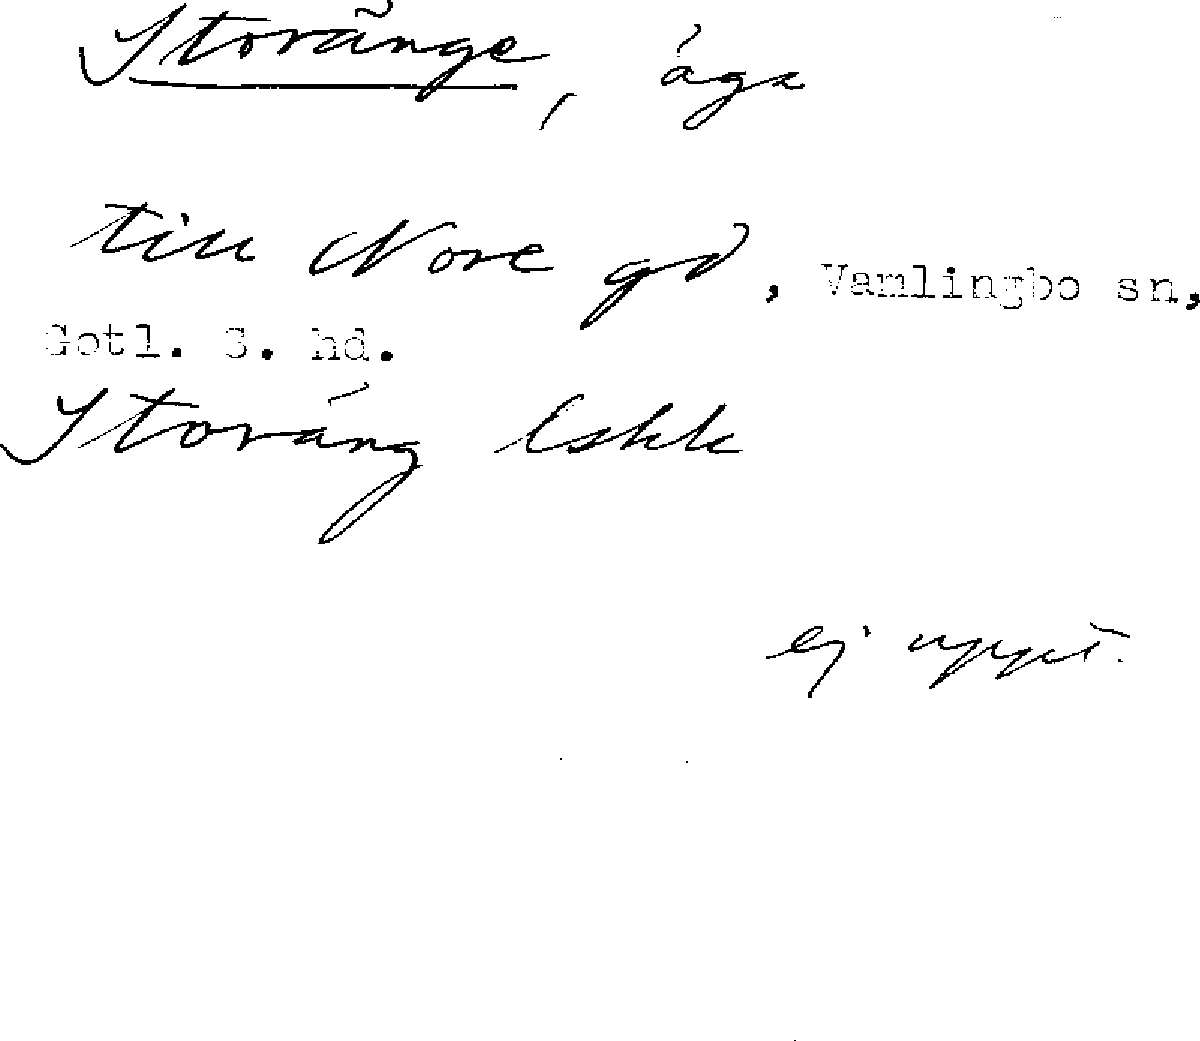 Storänge, äga
till Nore gd, Vamlingbo sn,
Gotl. S. hd.
Storäng Lskk
ej uppt.